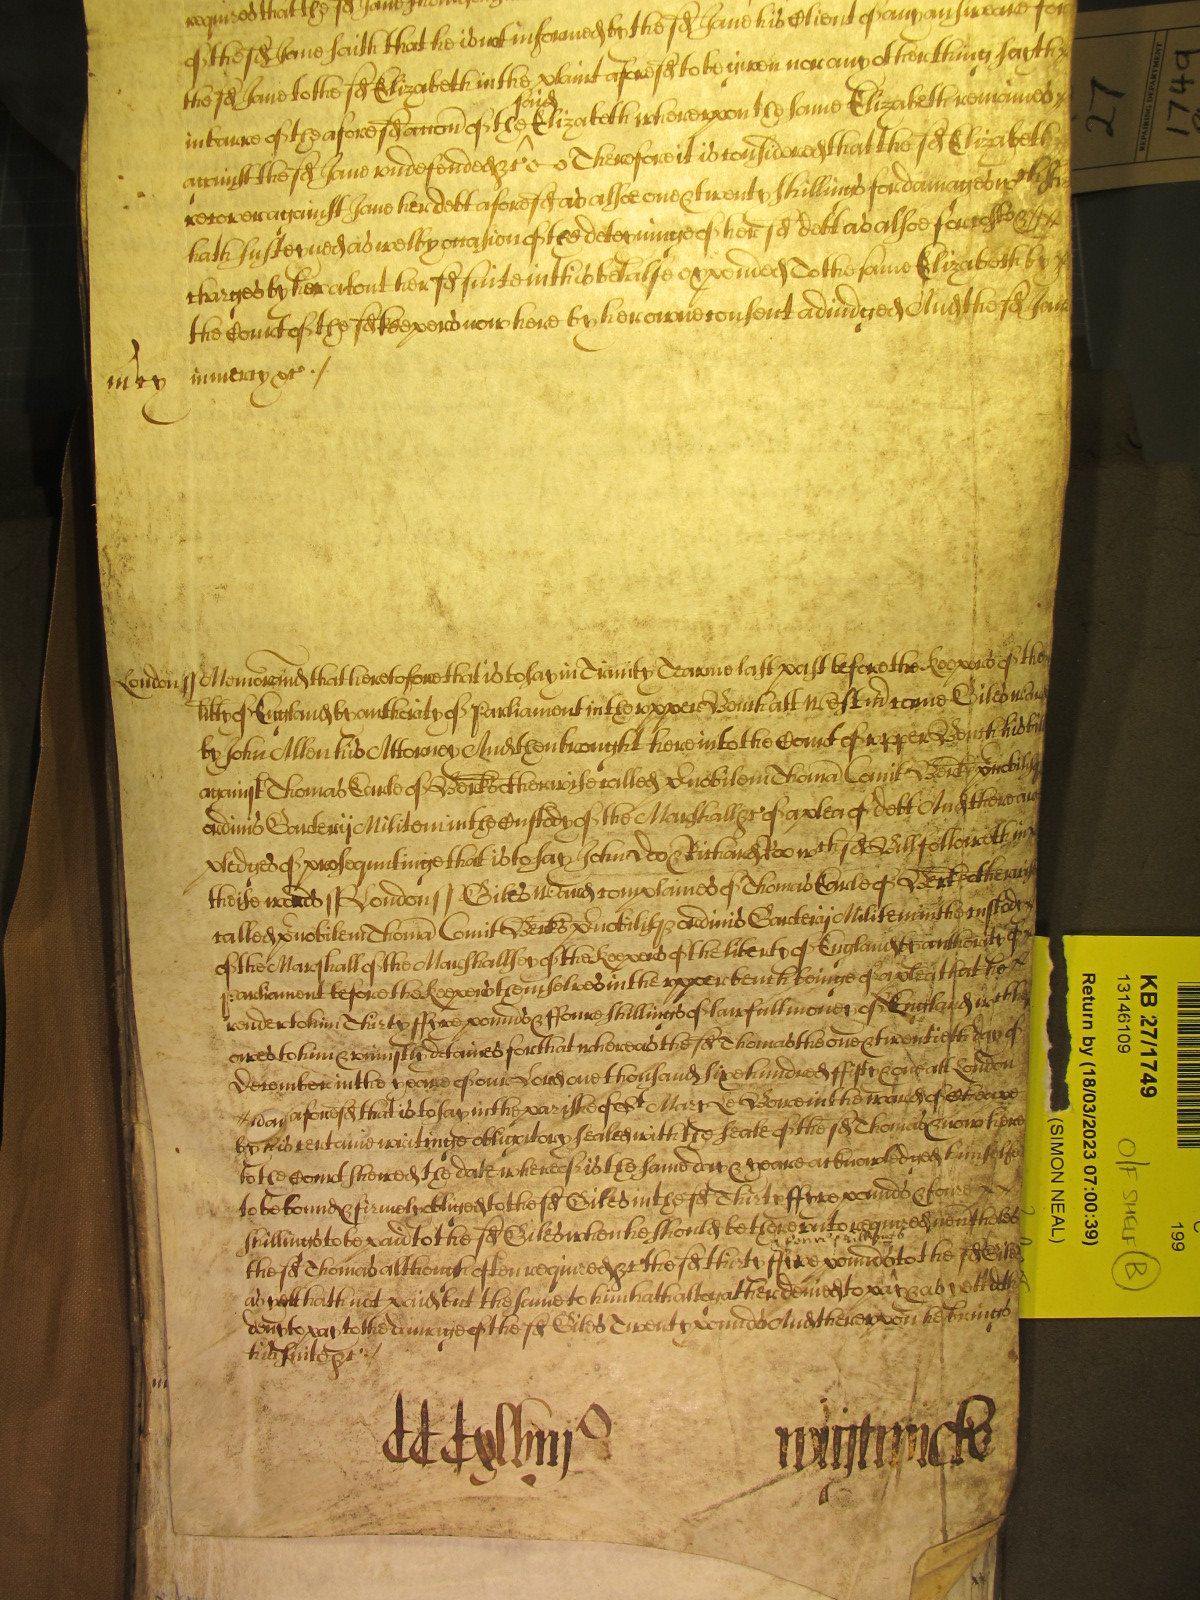 requires that the sd Jane
of the sd Jane saith that he is not informed by the sd Jane his Client of any answeare for
the sd Jane to the sd Elizabeth in the plaint aforesd to be given nor any other thing sayth
in barre of the aforesd accon of the said Elizabeth whereupon the same Elizabeth remaines
against the sd Jane undefended &c Therefore it is considered that the sd Elizabeth
recover against Jane her debt aforesd as alsoe one & twenty shillings for damages wch she
hath susteyned as well by occasion of the deteyninge of her sd debt as alsoe for costs &
charges by her about her sd suite in this behalfe expended To the same Elizabeth by
the Court of the sd keepers now here by her owne consent adiudged And the sd Jane
mcy in mercy &c ./
London ss Memorand that heretofore that is to say in Trinity Tearme last past before the Keepers of the
libty of England by authority of Parliament in the upper Bench att Westm came Giles
by John Allen his Attorney And then brought here into the Court of upper Bench his bill
against Thomas Earle of Berks otherwise called pnobilem Thomā Comit Berks pnobilisq
ordinis Garterij Militem in the Custody of the Marshall &c of a plea of debt And there are
pledges of prosequutinge that is to say John Doo & Richard Roo wch sd Bill followeth in
theise words ss London ss Giles complaines of Thomas Earle of Berks otherwise
called pnobilem Thomā Comit Berks pnobilisq ordinis Garterij Militem in the custody
of the Marshall of the Marshallsey of the Keepers of the liberty of England by authority of
Parliament before the Keepers themselves in the upper bench beinge of a plea that he
render to him Thirty ffive pounds & ffoure shillings of lawfull money of England which he
owes to him & uniustly detaines for that whereas the sd Thomas the one & twentieth day of
December in the yeare of our Lord one thousand sixe hundred ffifty & one att London
aforesd that is to say in the parishe of St Mary Le Bowe in the ward of Cheape
by his certaine writinge obligatory sealed with the seale of the sd Thomas & now here
to the Court shewed the date whereof is the same day & yeare acknowledged himselfe
to be bound & firmely obliged to the sd Giles in the sd Thirty ffive pounds & foure
shillings to be paid to the sd Giles when he should be thereunto required neverthelesse
the sd Thomas although often required &c the sd thirty ffive pounds & foure shillings to the sd Giles
as yett hath not paid but the same to him hath altogather denied to pay & as yett doth
deny to pay to the damage of the sd Giles Twenty pounds And thereupon he brings
his suite &c ./
Wightwicke
KB 27/1749
13146109
Return by (18/03/2023 07:00:39)
(SIMON NEAL)
O/F SHELF
B
199
27
1749
REPAIRING DEPARTMENT